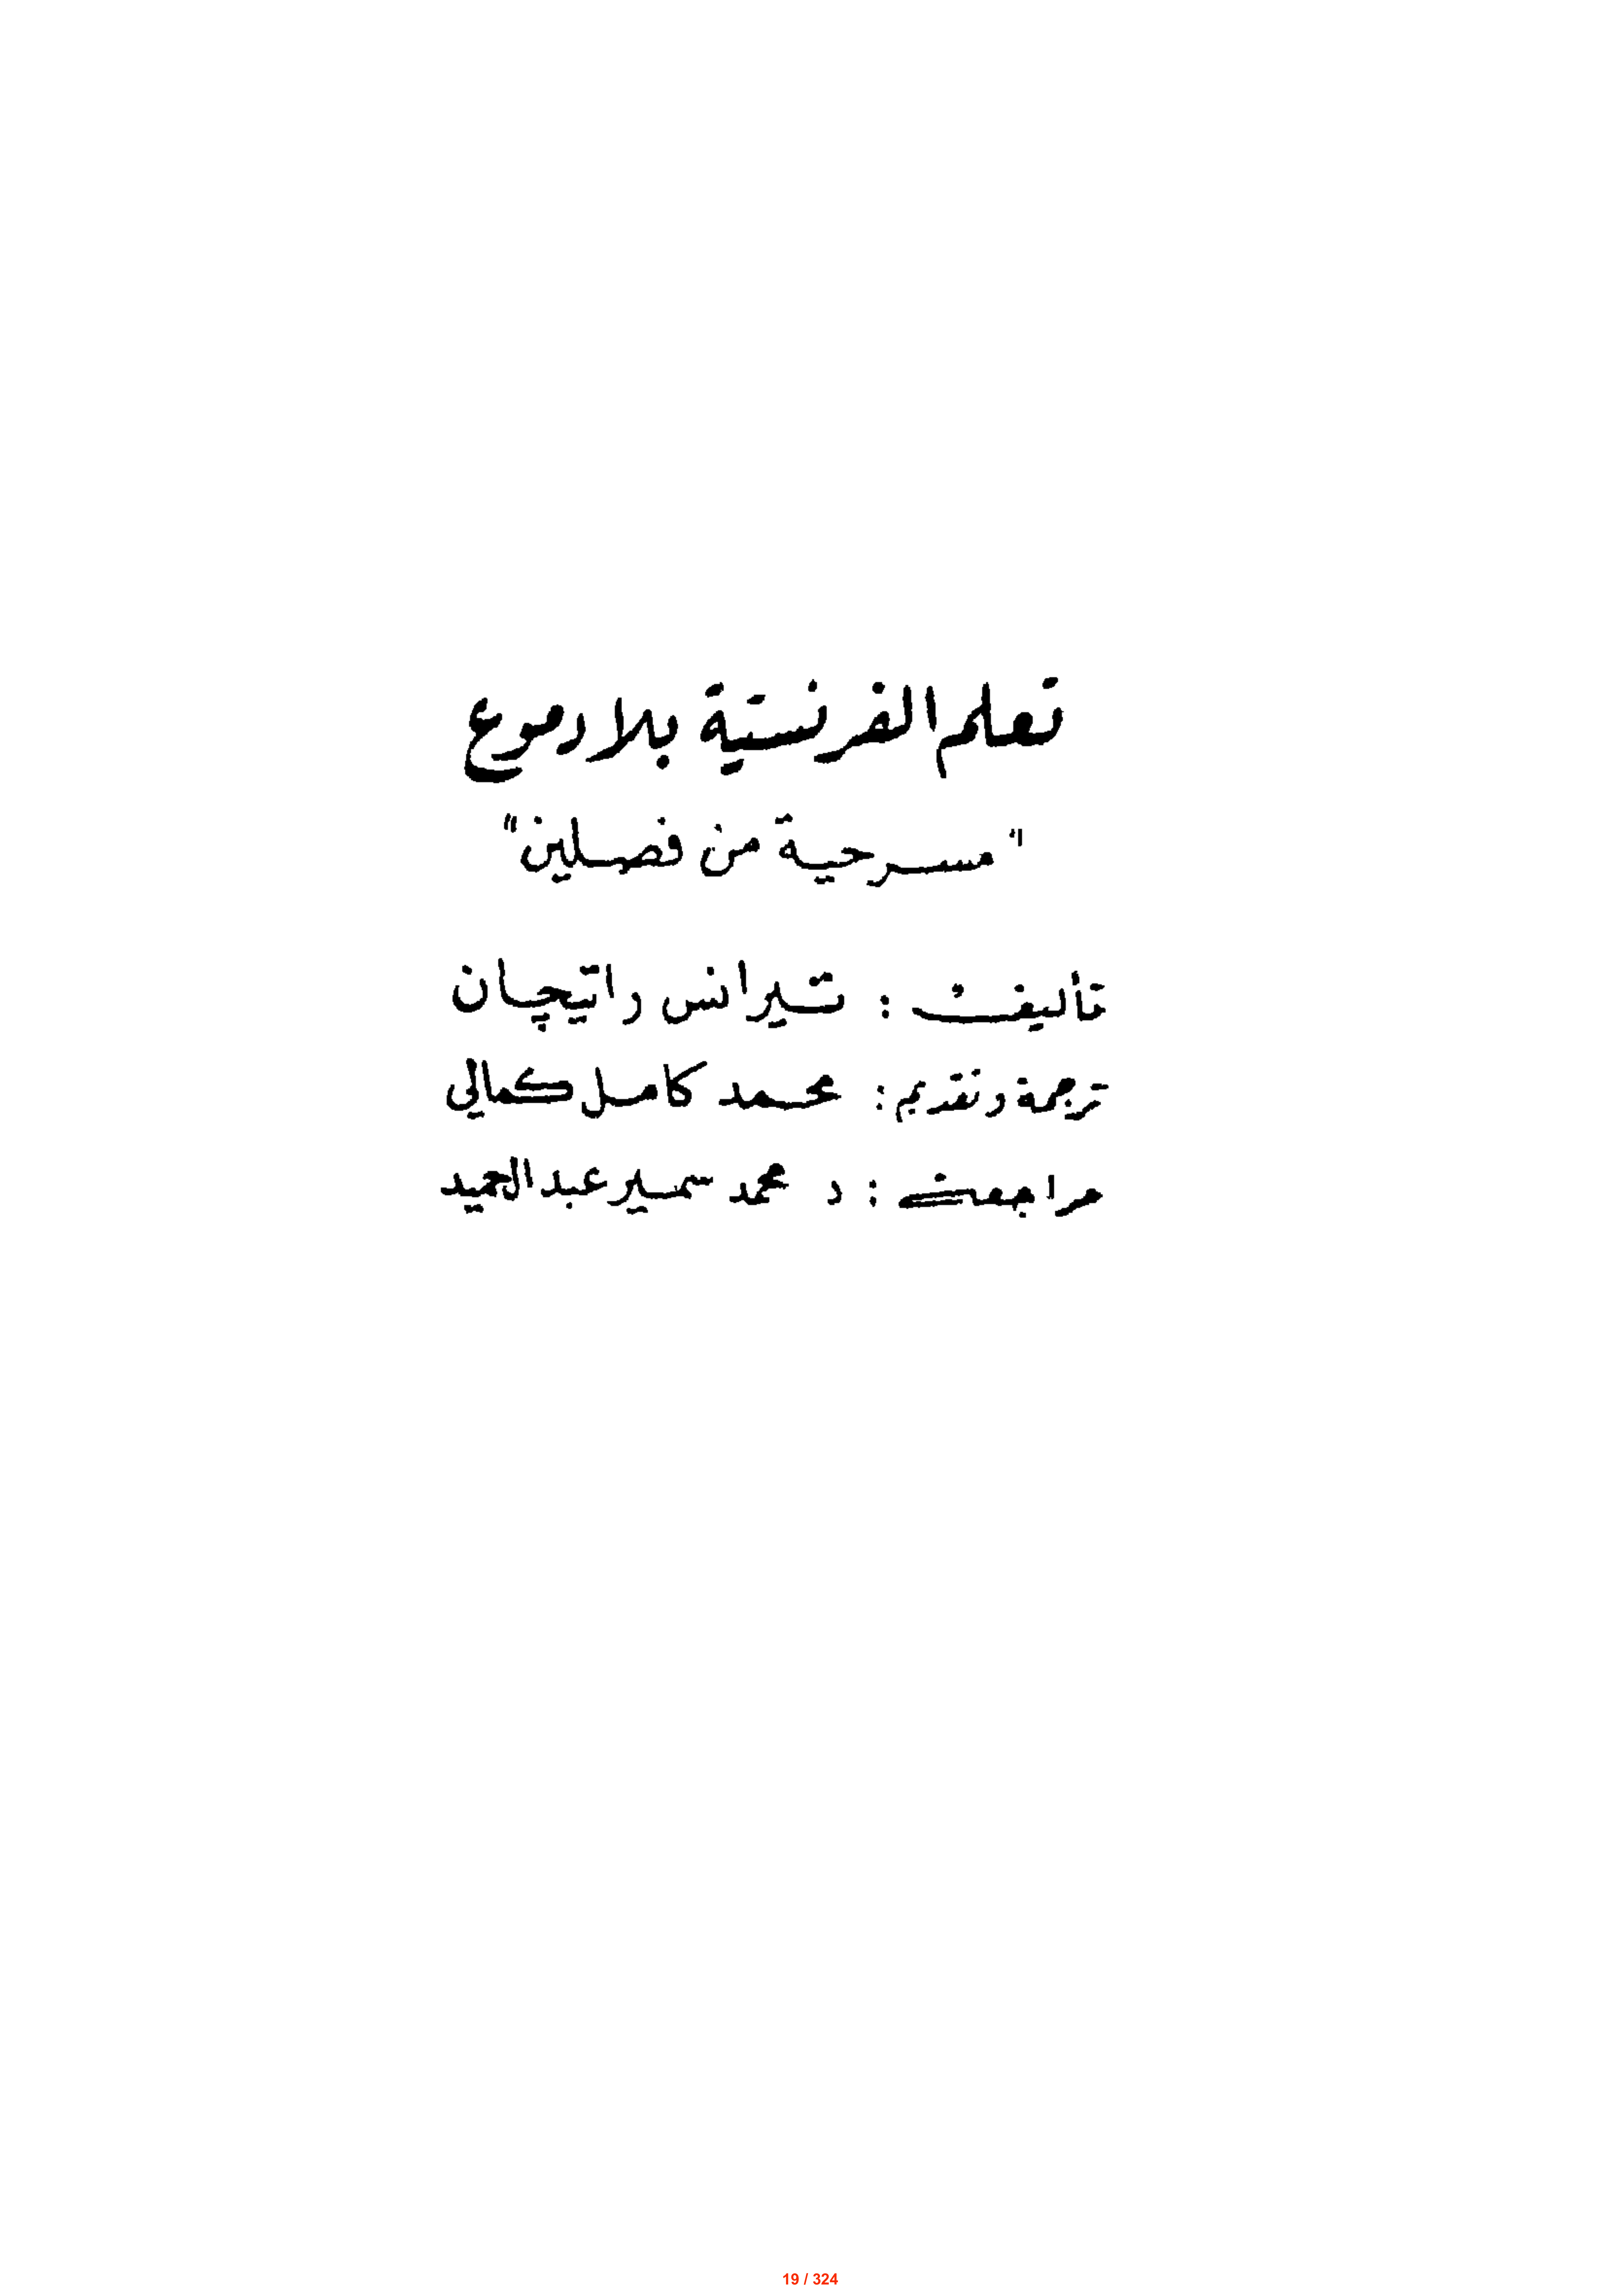 تعلم الفرنسية بلا دموع
"مسرحية من فصلين"
تأليف : تيرانس راتيچان
ترجمة وتقديم : محمد كامل كمالي
مراجعة : د محمد سمير عبد الحميد
19 / 324